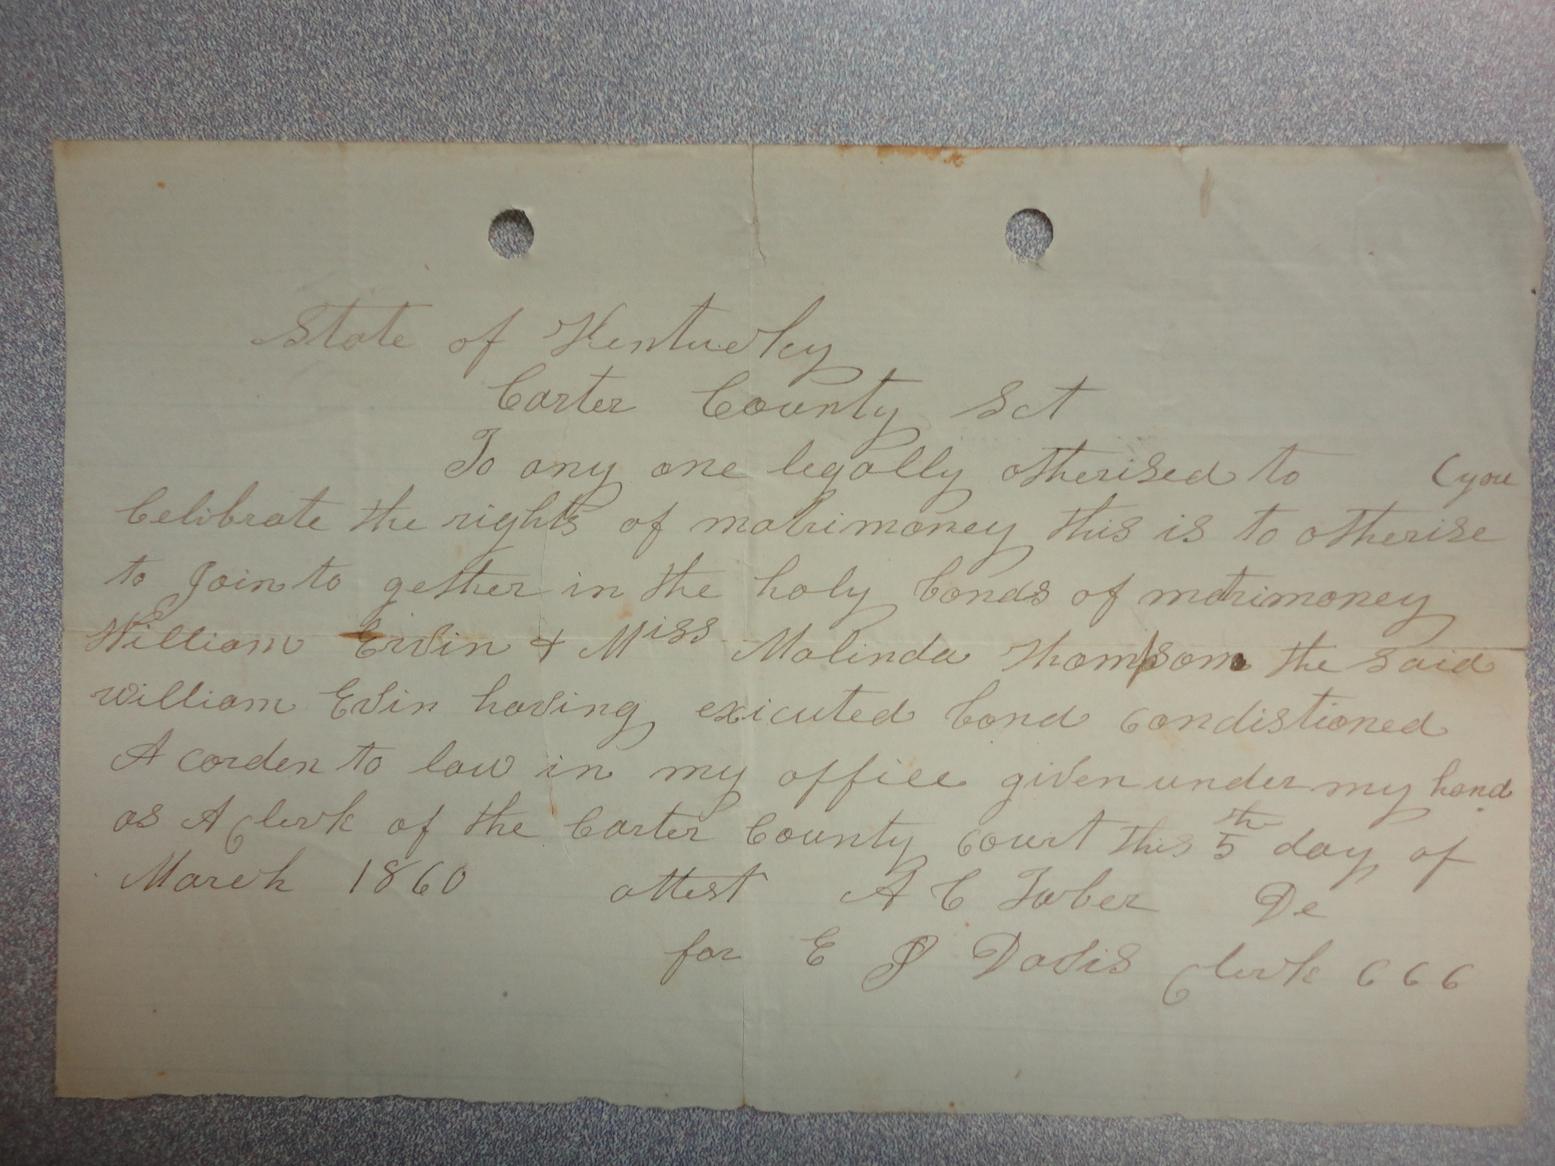 State of Kentucky
Carter County Sct
To any one legally otherised to (you
Celibrate the rights of matrimoney this is to otherise
to Join to gether in the holy bonds of matrimoney
William Ervin & Miss Malinda Thompson the said
william Ervin having exicuted bond condistioned
A corden to law in my office given under my hand
as A Clerk of the Carter County court this 5th day of
March 1860 attest A C Tuber De
for E J Davis Clerk C C C